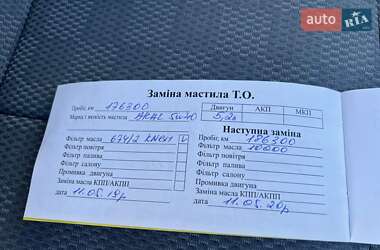 auto RIA
Заміна мастила Т.О.
Пробіг км 176300
Марка і якість мастила ARAL 5w40
Двигун АКП МКП
5,2л
Фільтр масла 674/2 KNECH
Фільтр повітря
Фільтр палива
Фільтр салону
Промивка двигуна
Заміна масла КПП/АКПП
дата 11.05.19р
Наступна заміна
Пробіг км 186300
Фільтр масла 10000
Фільтр повітря
Фільтр палива
Фільтр салону
Промивка двигуна
Заміна масла КПП/АКПП
дата 11.05.20р